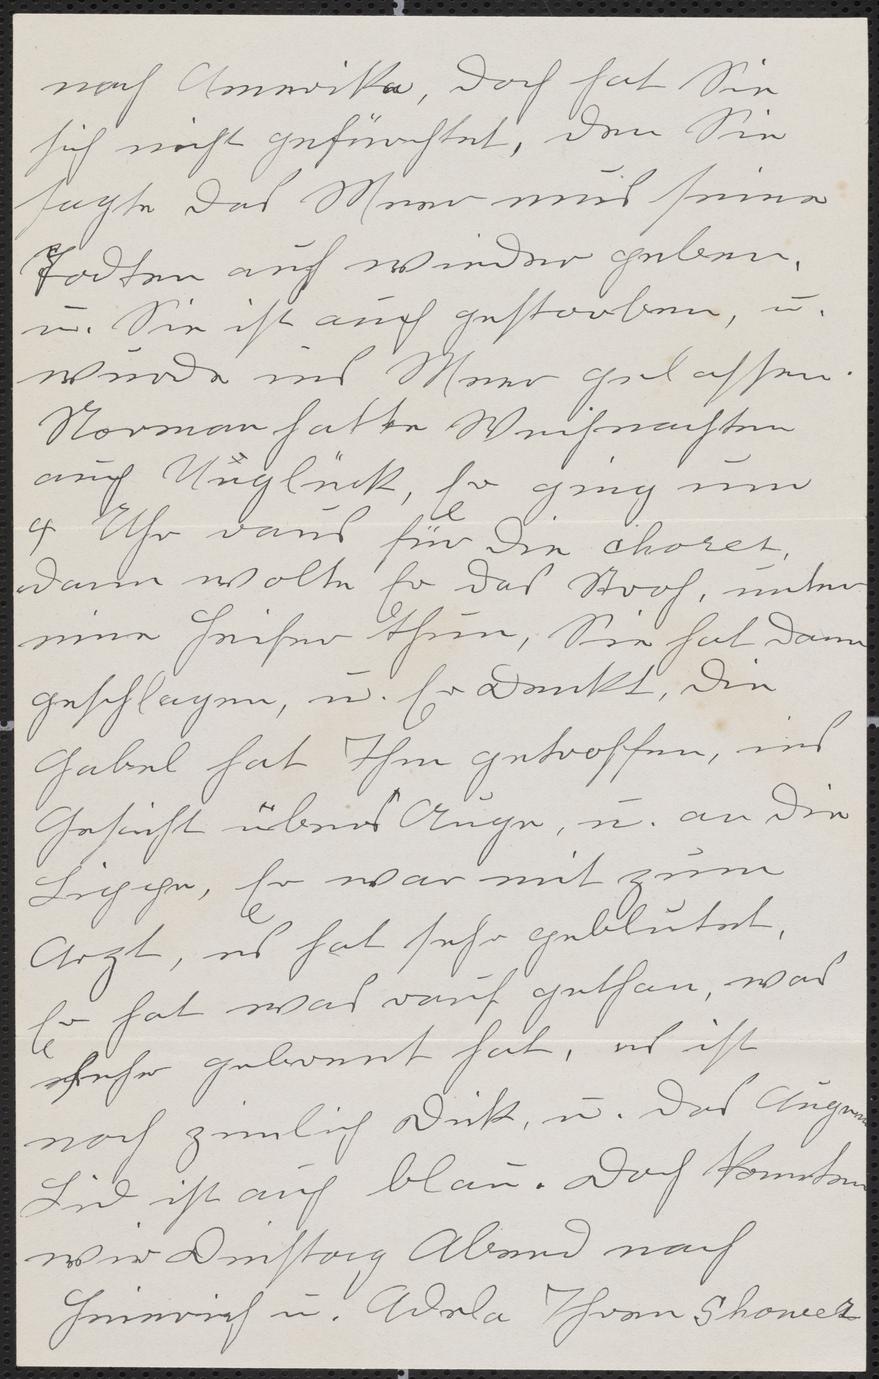 nach Amerika, doch hat Sie
sich nicht gefürchtet, den Sie
sagte das Meer mus seine
Todten auch wieder geben,
u. Sie ist auch gestorben, u.
wurde ins Meer gelassen.
Norman hatte Weihnachten
auch Unglück, Er ging um
4 Uhr raus für die chores,
dann wolte Er das Stroh, unter
eine Heifer thun, Sie hat dann
geschlagen, u. Er Denkt, die
Gabel hat Ihn getroffen, ins
Gesicht übers Auge, u. an die
Lippe, Er war mit zum
Arzt, es hat sehr geblutet,
Er hat was rauf gethan, was
sehr gebrennt hat, es ist
noch zimlich Dick, u. das Augen
Lid ist auch blau. Doch konnten
wir Dinstag Abend nach
Heinrich u. Adela Ihren Shower